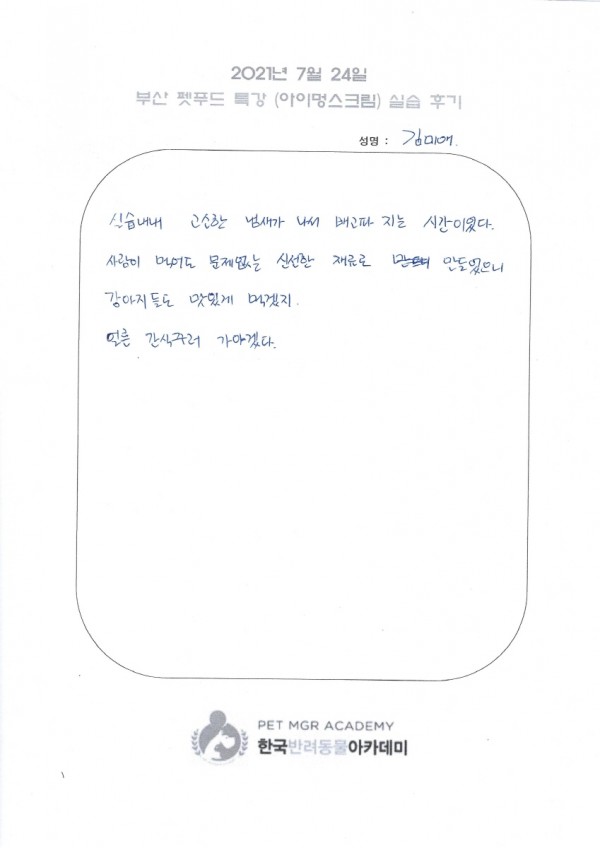 2021년 7월 24일
부산 펫푸드 특강 (아이멍스크림) 실습 후기
성명 : 김미애.
실습내내 고소한 냄새가 나서 배고파 지는 시간이였다.
사람이 먹어도 문제없는 신선한 재료로 만들었으니
강아지들도 맛있게 먹겠지.
얼른 간식주러 가야겠다.
PET MGR ACADEMY
한국반려동물아카데미